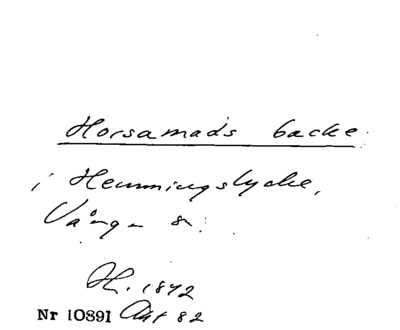 Horsamads backe
i Hemmingslycke,
Vånga sn.
H. 1842
Nr 10891 Aut 82